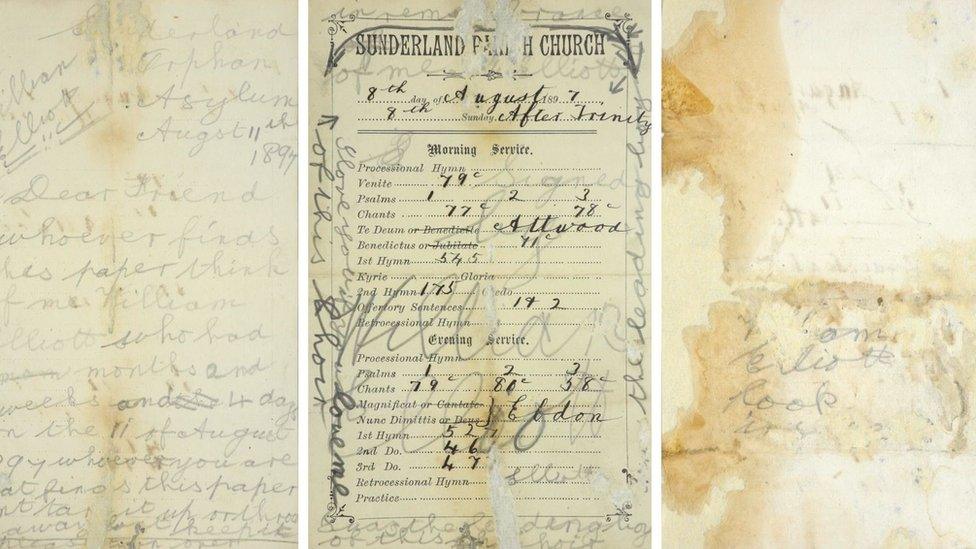 Sunderland
Orphan
Asylum
August 11th
1897
William
Elliott
Dear Friend
whoever finds
this paper think
of me William
Elliott who had
months and
weeks and 4 day
on the 11 of August
whoever you are
that finds this paper
don't tear it up or throw
away keep it
in remembrance
SUNDERLAND PARISH CHURCH
of me W Elliott
8th day of August 1897
8th Sunday After Trinity
Morning Service.
Processional Hymn
Venite 79c
Psalms 1 2 3
Chants 77c 78c
Te Deum or Benedicite Attwood
Benedictus or Jubilate 71c
1st Hymn 545
Kyrie Gloria
2nd Hymn 175 Credo
Offertory Sentences 1 & 2
Retrocessional Hymn
Evening Service.
Processional Hymn
Psalms 1 2 3
Chants 79c 80c 58c
Magnificat or Cantate
Nunc Dimittis or Deus Ebdon
1st Hymn 527
2nd Do. 46
3rd Do. 47
Retrocessional Hymn
Practice
Signed
William
Elliott
the leading boy
of this choir
I love you if you love me
I was the leading boy
of this choir
am
Elliott
look